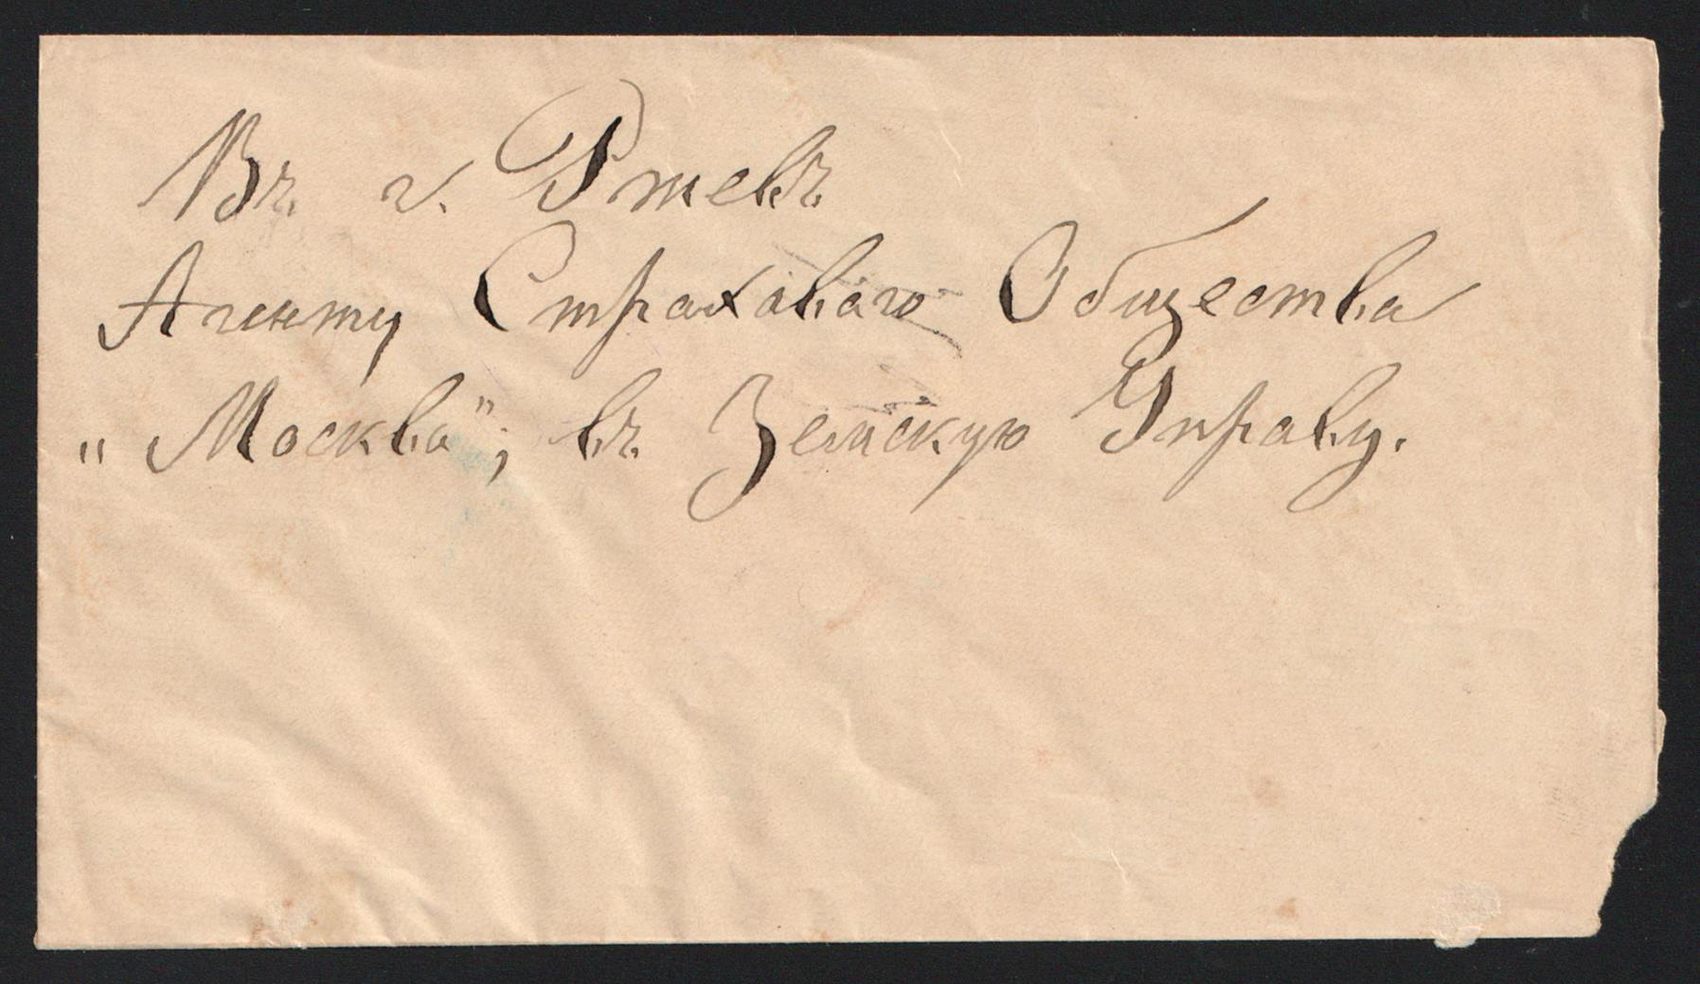 Въ г. Ржевъ
Агенту Страховаго Общества
„Москва“; въ Земскую Управу.